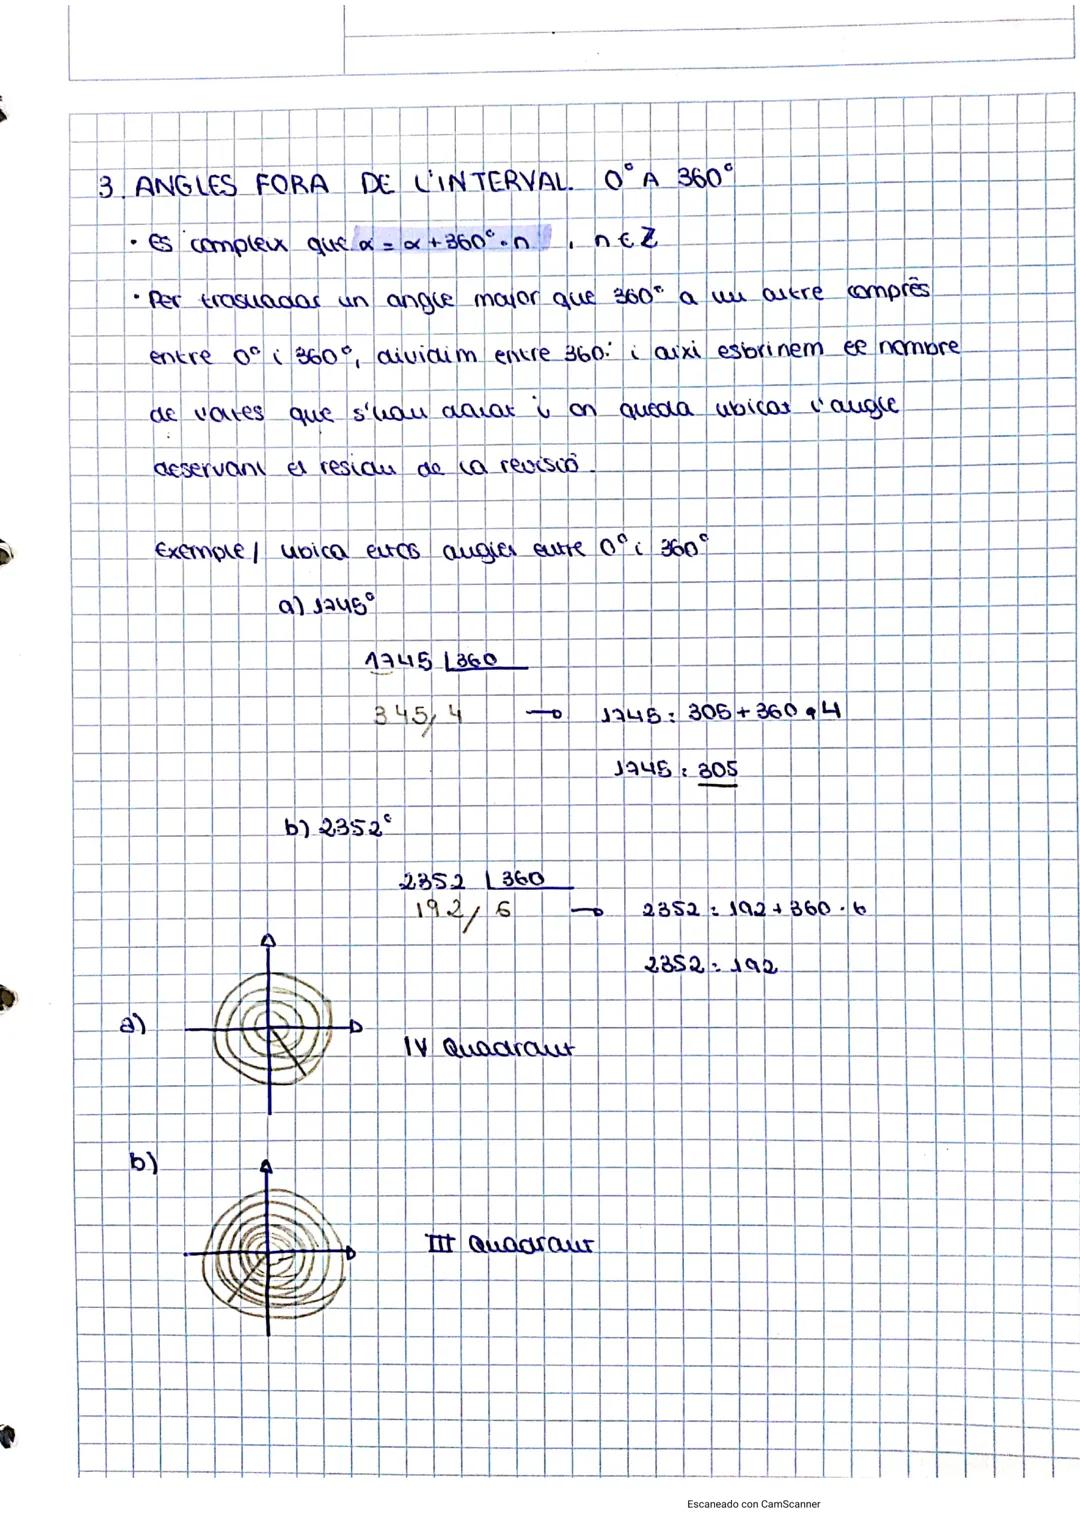 3. ANGLES FORA DE L'INTERVAL. 0° A 360°
· Es compleix que α = α + 360° · n , n ∈ Z
· Per traslladar un angle major que 360° a un altre comprès
entre 0° i 360°, dividim entre 360: i aixi esbrinem el nombre
de voltes que s'han donat i on queda ubicat l'angle
deservant el residu de la revisió.
Exemple / ubica estos angles entre 0° i 360°
a) 1745°
1745 360
345/ 4 → 1745 = 305 + 360 · 4
1745 = 305
b) 2352°
2352 360
192/ 6 → 2352 = 192 + 360 · 6
2352 = 192
a)
IV Quadrant
b)
III Quadrant
Escaneado con CamScanner